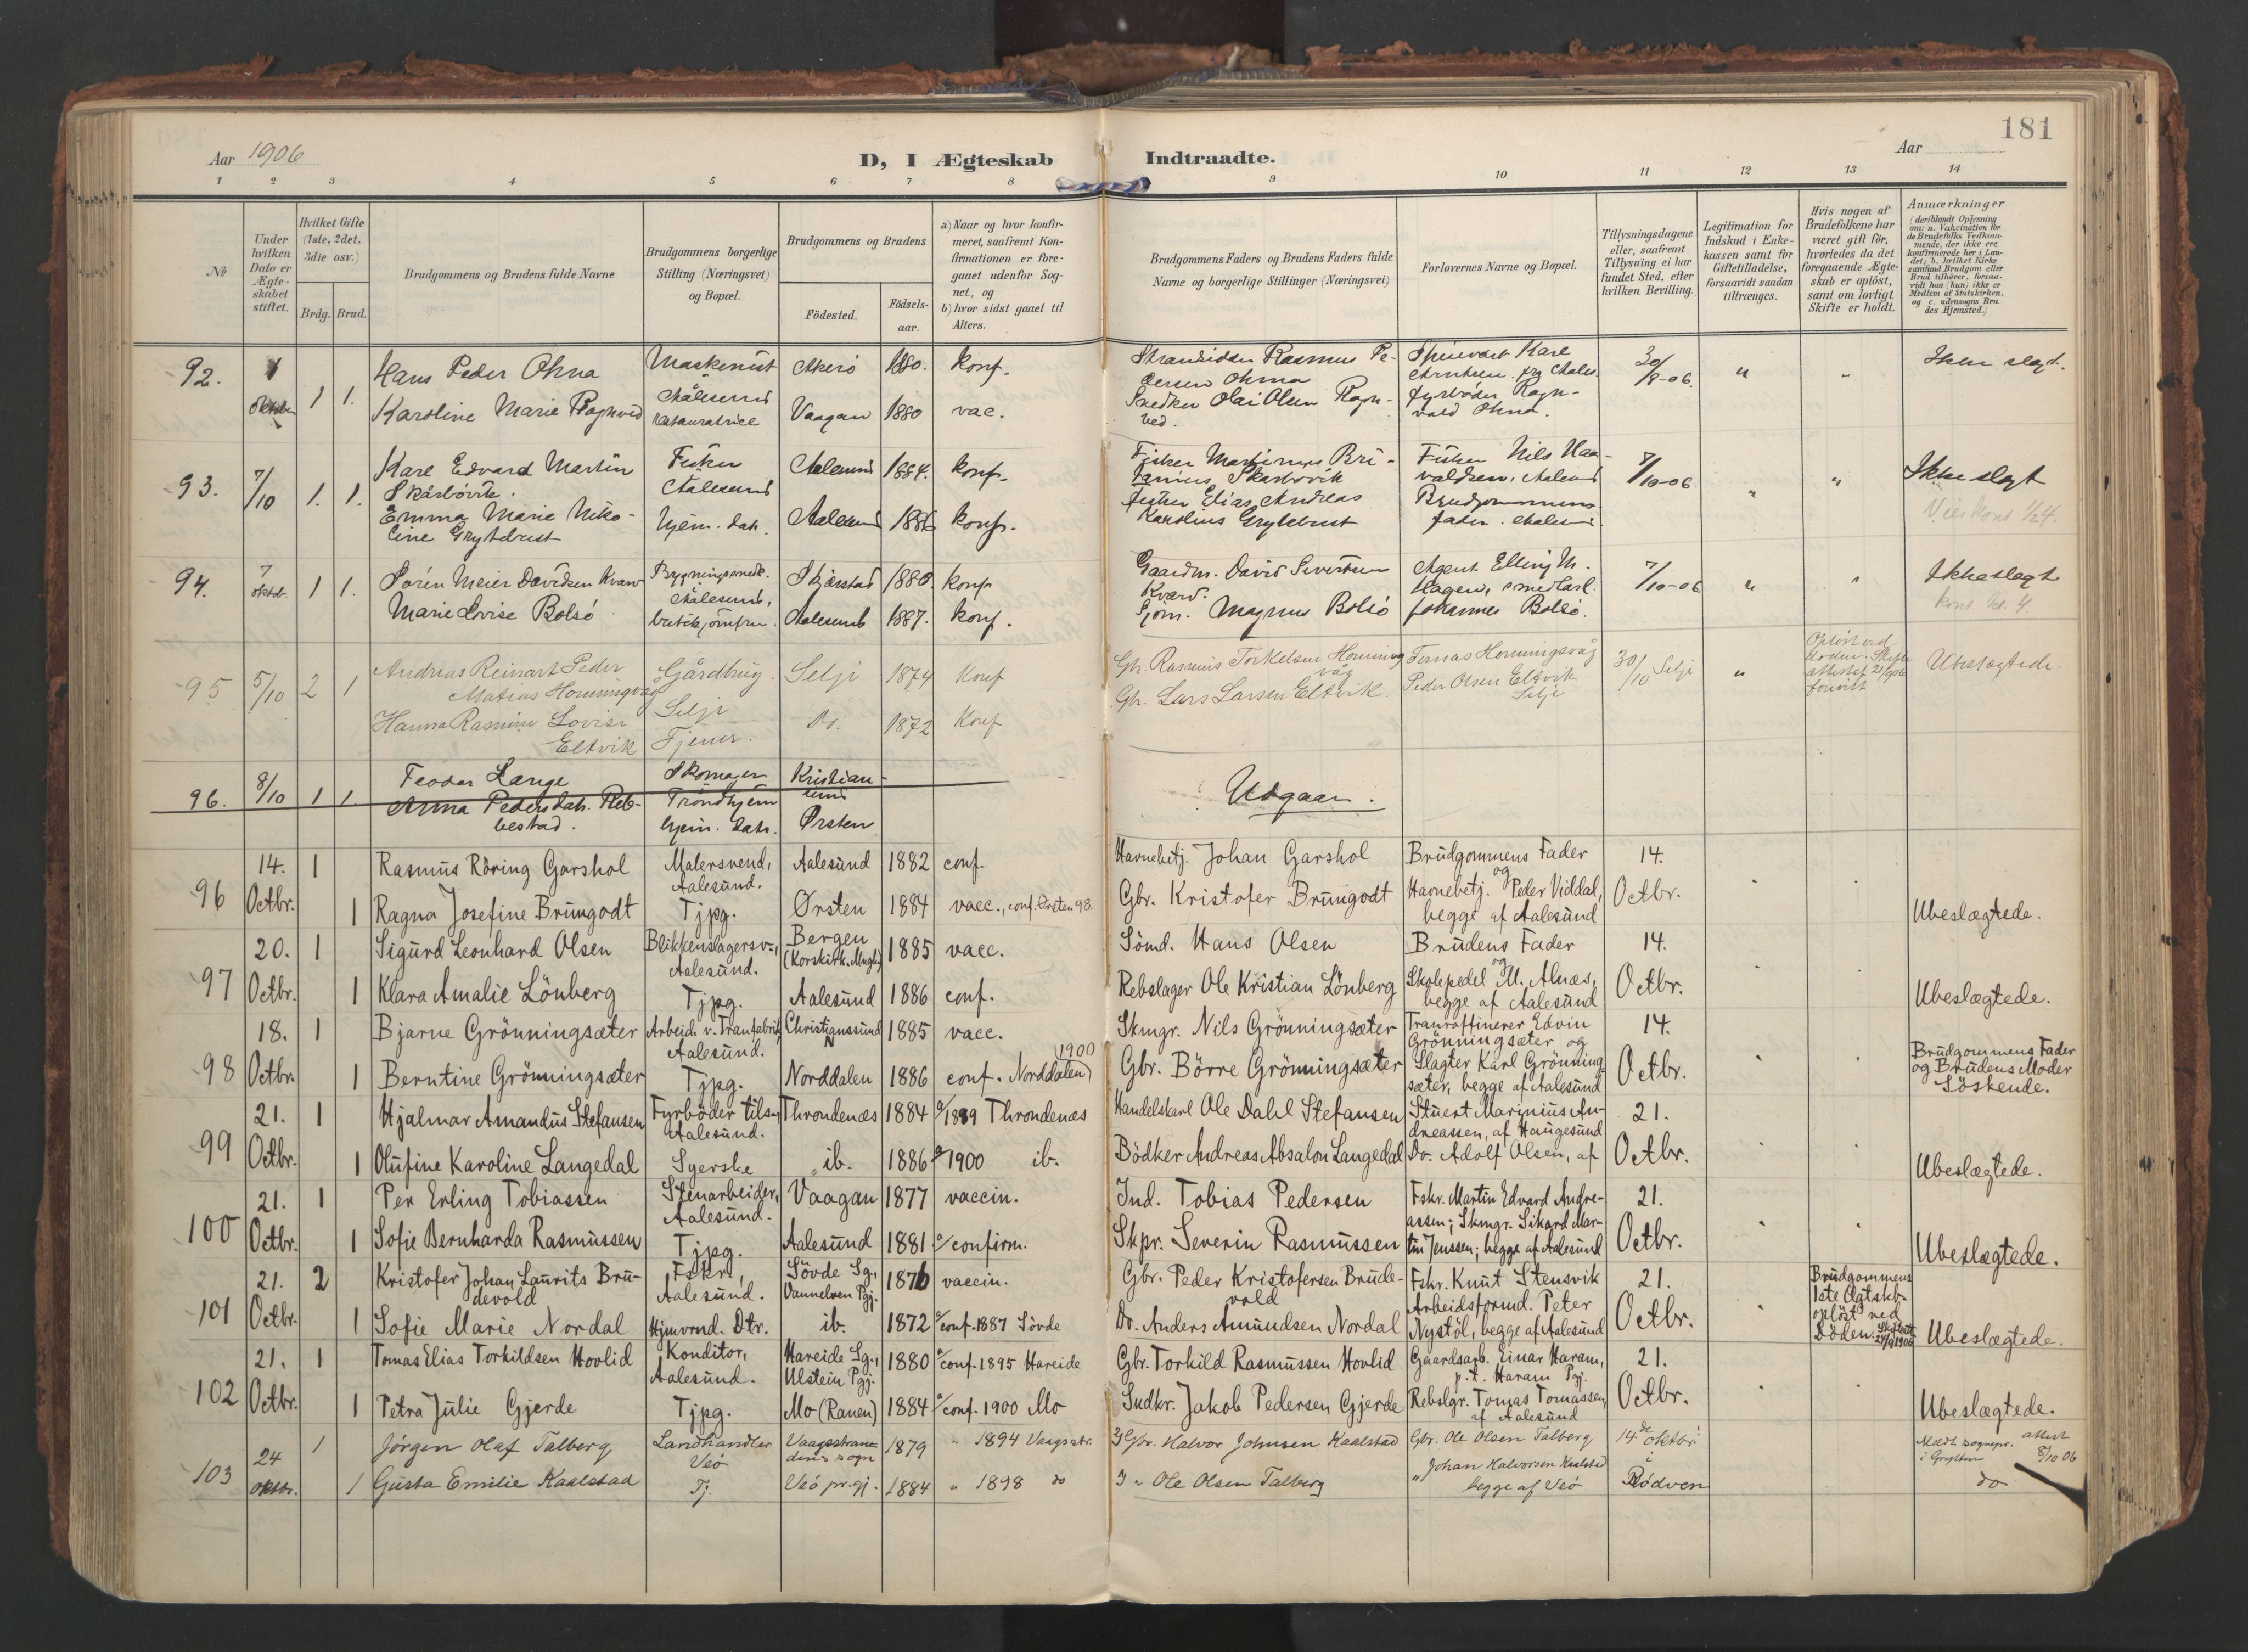 181
Aar 1906
D, I Ægteskab Indtraadte.
Aar
1 2 3 4 5 6 7 8 9 10 11 12 13 14
No
Under hvilken Dato er Ægte-skabet stiftet.
Hvilket Gifte (1ste, 2det, 3die osv.)
Brdg. Brud.
Brudgommens og Brudens fulde Navne
Brudgommens borgerlige Stilling (Næringsvei) og Bopæl.
Brudgommens og Brudens
Födested. Födsels-aar.
a) Naar og hvor konfir-meret, saafremt Kon-firmationen er fore-gaaet udenfor Sog-net, og
b) hvor sidst gaaet til Alters.
Brudgommens Faders og Brudens Faders fulde Navne og borgerlige Stillinger (Næringsvei)
Forlovernes Navne og Bopæl.
Tillysningsdagene eller, saafremt Tillysning ei har fundet Sted, efter hvilken Bevilling.
Legitimation for Indskud i Enke-kassen samt for Giftetilladelse, forsaavidt saadan tiltrænges.
Hvis nogen af Brudefolkene har været gift før, hvorledes da det foregaaende Ægte-skab er oplöst, samt om lovligt Skifte er holdt.
Anmærkninger
(deriblandt Oplysning om: a. Vakcination for de Brudefolks Vedkom-mende, der ikke ere konfirmerede her i Lan-det; b. hvilket Kirke samfund Brudgom eller Brud tilhörer, forsaa-vidt han (hun) ikke er Medlem af Statskirken, og c. udensogns Bru des Hjemsted.)
92. 1 Oktober 1 1. Hans Peder Ohna Maskenist Aalesund Akerö 1880. konf. Strandsidder Rasmus Pe-dersen Ohna 30/8-06. " " Ikke slegt.
Karoline Marie Ragnved Vaagan 1880 vac. Snedker Olai Olsen Ragn-ved. Fyrböder Ragn-vald Ohna.
93. 7/10 1. 1. Karl Edvard Martin Skarbövik. Fisker Aalesund Aalesund 1884. konf. Fisker Nils Haa-valdsen, Aalesund 7/10-06 " " Ikke slegt
Emma Marie Niko-line Grytebust Hjem. dat. Aalesund 1886 konf. Fisker Elias Andreas Karolius Grytebust Brudgommens fader. Aalesund
94. 7 Oktob. 1 1. Sören Meier Davidsen Kvarv Bygningssnedk. Aalesund, Skjerstad 1880. konf Gaardm. David Sivertsen Kvarv. Agent Elling M. Hagen, smed Carl 7/10-06 " " Ikke slegt
Marie Lovise Bolsö butikjomfru. Aalesund 1887. konf. Magnus Bolsö Johannes Bolsö.
95 5/10 2 1 Andreas Reinart Peder Matias Horningvåg Gårdbrug. Selje Selje 1874 Konf Gbr. Rasmus Torkelsen Horningvåg 30/10 Selje " Ubeslægtede.
Hanna Rasmine Lovise Eltvik Tjener. Do. 1872 Konf Gbr. Lars Larsen Eltvik. Peder Olsen Eltvik Selje
96. 8/10 1 1. Feodor Lange Skomager Trondhjem Kristian-sund
Anna Pedersdatr. Reb-bestad. hjem. datr. Ørsten Udgaar.
96 14. Octbr. 1 Rasmus Röring Garshol Malersvend, Aalesund. Aalesund 1882 conf. Havnebetj. Johan Garshol Brudgommens Fader og 14. Octbr.
1 Ragna Josefine Brungodt Tjpg. Ørsten 1884 vacc., conf. Ørsten 98. Gbr. Kristofer Brungodt Havnebetj. Peder Viddal, begge af Aalesund Ubeslægtede.
97 20. Octbr. 1 Sigurd Leonhard Olsen Blikkenslagersv., Aalesund. Bergen (Korskirk. Mngh) 1885 vacc. Sömd. Hans Olsen Brudens Fader og 14. Octbr.
1 Klara Amalie Lönberg Tjpg. Aalesund 1886 conf. Rebslager Ole Kristian Lönberg Skolepedel M. Alnæs, begge af Aalesund Ubeslægtede.
98 18. Octbr. 1 Bjarne Grönningsæter Arbeid. v. Tranfabrik, Aalesund. Christianssund N 1885 vacc. Skmgr. Nils Grönningsæter Tranraffinerer Edvin Grönningsæter og 14. Octbr.
1 Berntine Grönningsæter Tjpg. Norddalen 1886 conf. Norddalen 1900 Gbr. Börre Grönningsæter Slagter Karl Grönning-sæter, begge af Aalesund Brudgommens Fader og Brudens Moder Söskende.
99 21. Octbr. 1 Hjalmar Amandus Stefansen Fyrböder tils., Aalesund. Throndenæs 1884 c/1899 Throndenæs Handelskarl Ole Dahl Stefansen Stuert Marinius An-dreassen, af Haugesund 21. Octbr.
1 Olufine Karoline Langedal Syerske ib. 1886 c/1900 ib. Bödker Andreas Absalon Langedal Do. Adolf Olsen, af Ubeslægtede.
100 21. Octbr. 1 Per Erling Tobiassen Stenarbeider, Aalesund. Vaagan 1877 vaccin. Ind. Tobias Pedersen Fskr. Martin Edvard Andre-assen; Skmgr. Sikard Mar- 21. Octbr.
1 Sofie Bernharda Rasmussen Tjpg. Aalesund 1881 c/confirm. Skpr. Severin Rasmussen tin Jenssen; begge af Aalesund Ubeslægtede.
101 21. Octbr. 2 Kristofer Johan Laurits Bru-devold Fskr., Aalesund. Sövde Sg., Vannelven Pgj. 1876 vaccin. Gbr. Peder Kristofersen Brude-vold Fskr. Knut Stensvik Arbeidsformd. Peter 21. Octbr. Brudgommens 1ste Ægtskb. oplöst ved Döden.
1 Sofie Marie Nordal Hjmvrnd. Dtr. ib. 1872 conf. 1887 Sövde Do. Anders Amundsen Nordal Nystöl, begge af Aalesund Ubeslægtede.
102 21. Octbr. 1 Tomas Elias Torkildsen Hovlid Konditor, Aalesund. Hareide Sg., Ulstein Pgj. 1880 conf. 1895 Hareide Gbr. Torkild Rasmussen Hovlid Gaardsarb. Einar Haram, p.t. Haram Pgj. 21. Octbr.
1 Petra Julie Gjerde Tjpg. Mo (Ranen) 1884 conf. 1900 Mo Sudkr. Jakob Pedersen Gjerde Rebslgr. Tomas Tomassen, af Aalesund Ubeslægtede.
103 24 Oktbr. 1 Jörgen Olaf Talberg Landhandler Veö 1879 " 1894 Gbr. Halvor Johnsen Kaalstad Gbr. Ole Olsen Talberg 14de oktbr. i Rödven attest 8/10 06
1 Gusta Emilie Kaalstad Tj. Veö pr.gj. 1884 " 1898 do " Ole Olsen Talberg " Johan Halvorsen Kaalstad begge af Veö do